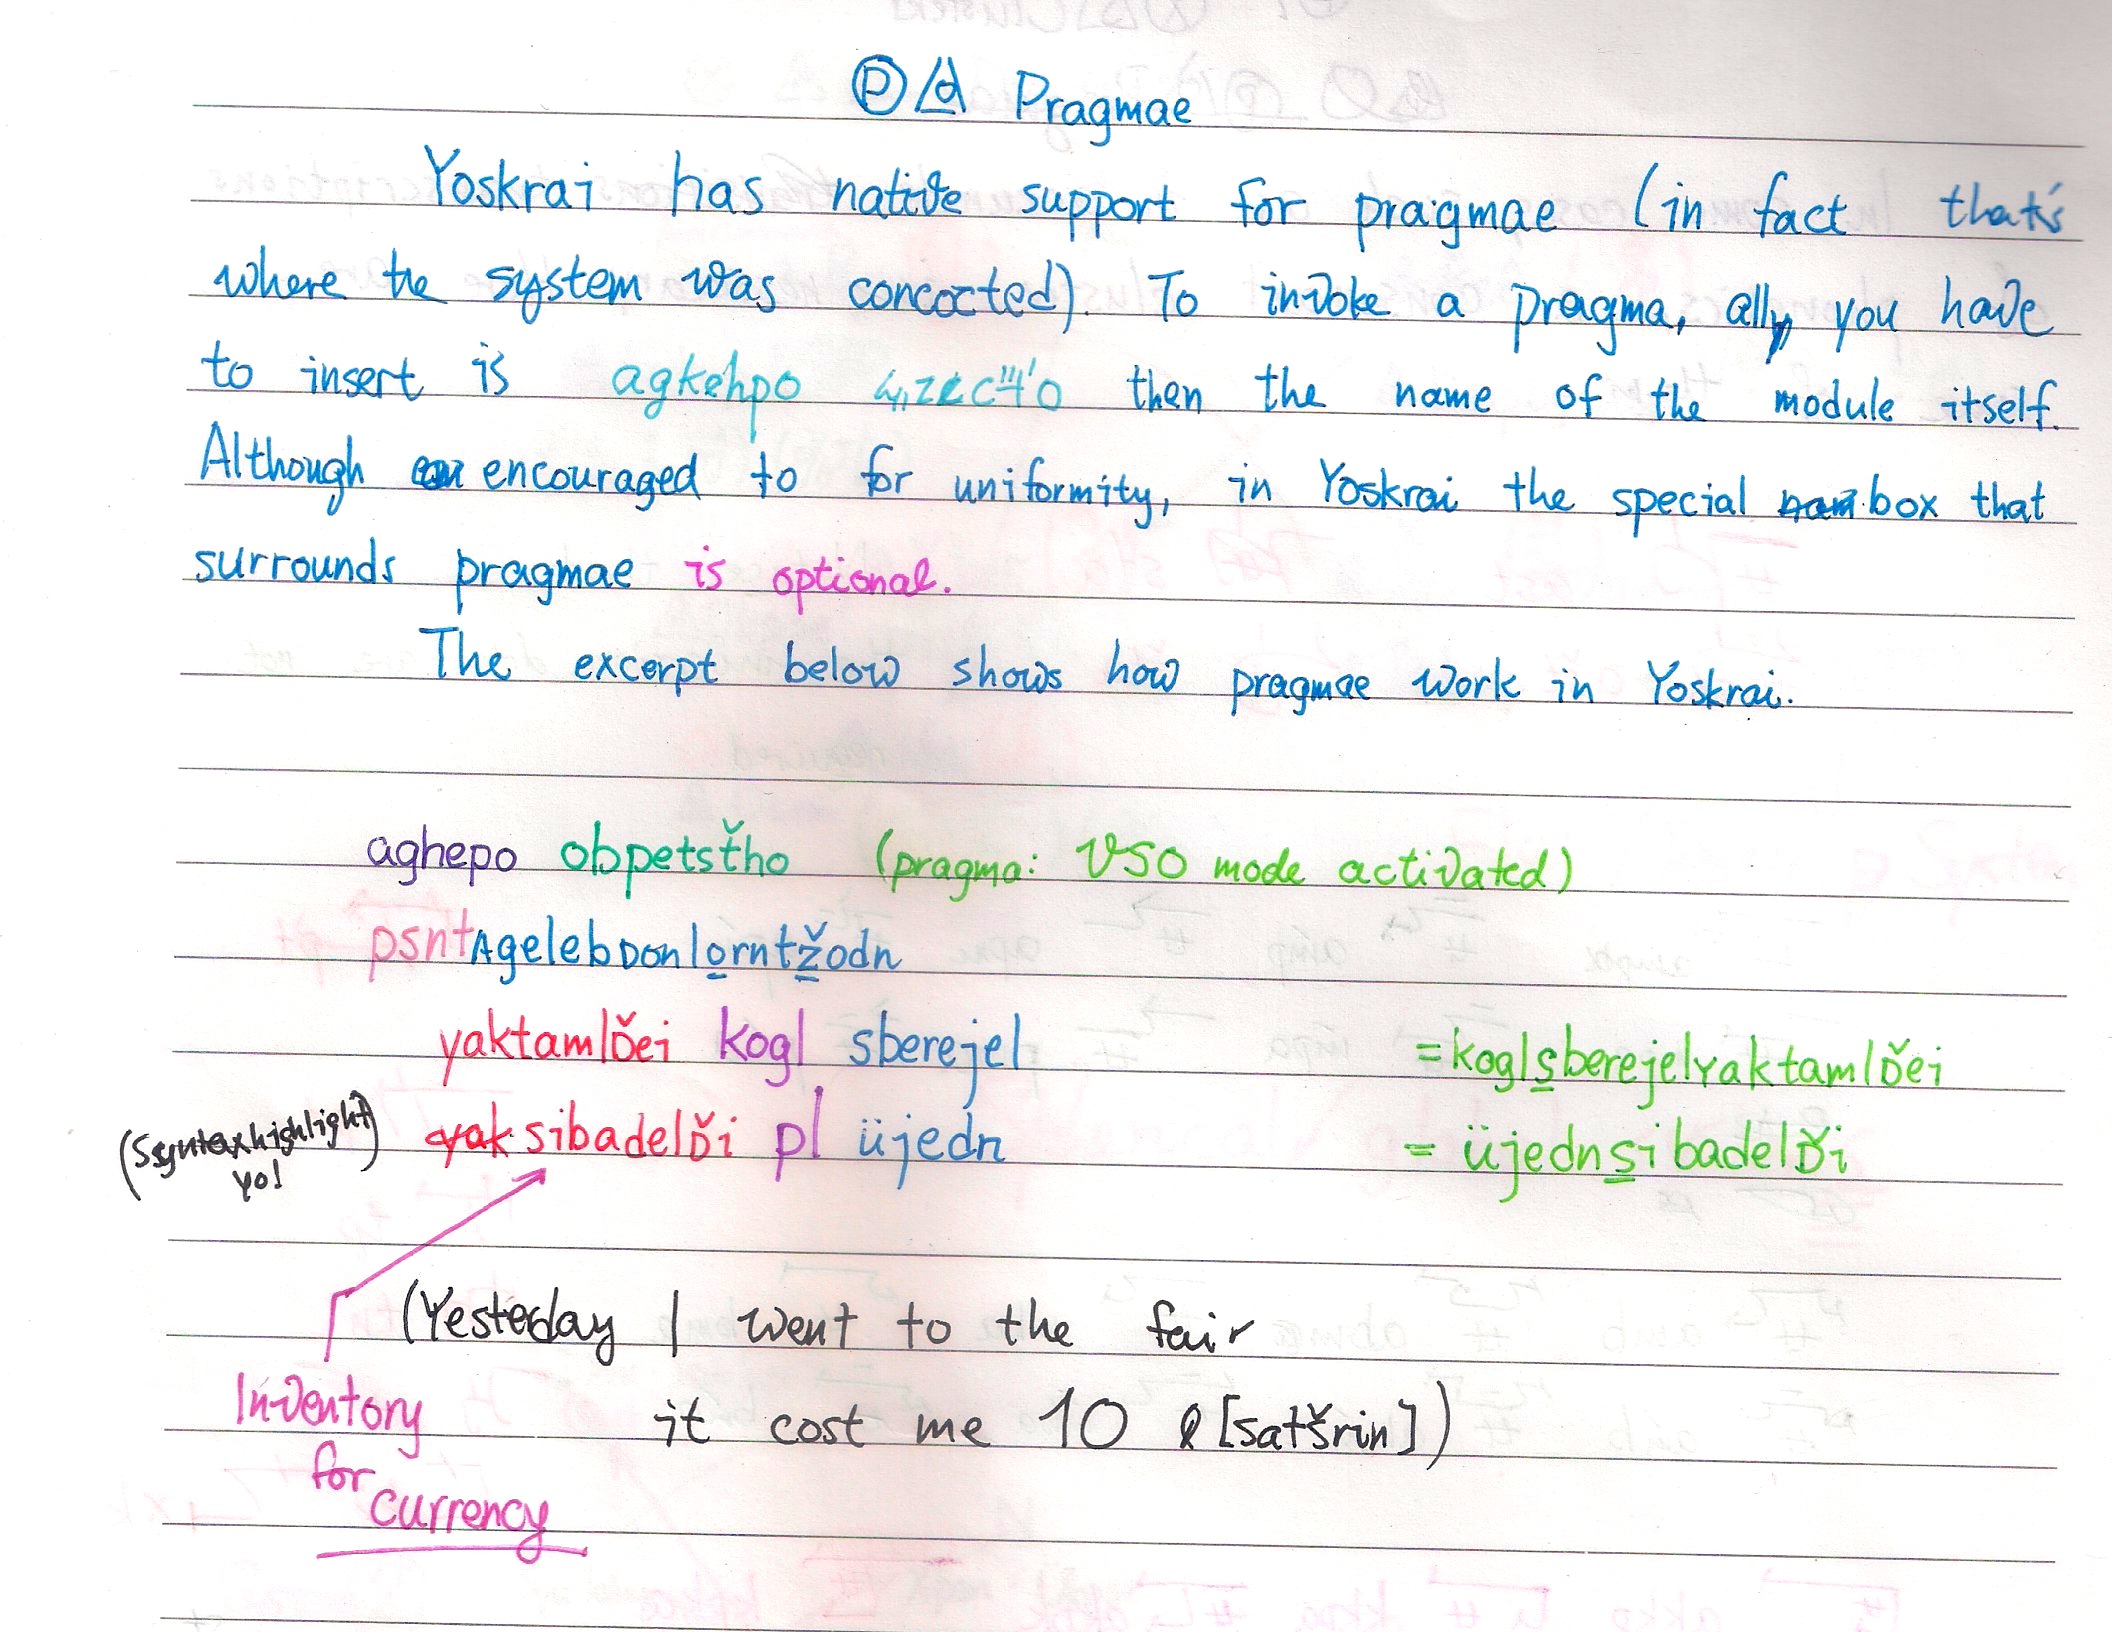 Pragmae
Yoskrai has native support for pragmae (in fact that's
where the system was concocted). To invoke a pragma, all you have
to insert is agkehpo then the name of the module itself.
Although encouraged to for uniformity, in Yoskrai the special box that
surrounds pragmae is optional.
The excerpt below shows how pragmae work in Yoskrai.
aghepo obpetsťho (pragma: VSO mode activated)
psntAgelebDonlo̲rntž̳odn
yaktamlĎei kogl sberejel =kogls̲berejelyaktamlĎei
(Syntaxhighlight yo!) sibadelĎi pl üjedn = üjedns̲ibadelĎi
(Yesteday I went to the fair
Inventory it cost me 10 [satšrin])
for
currency